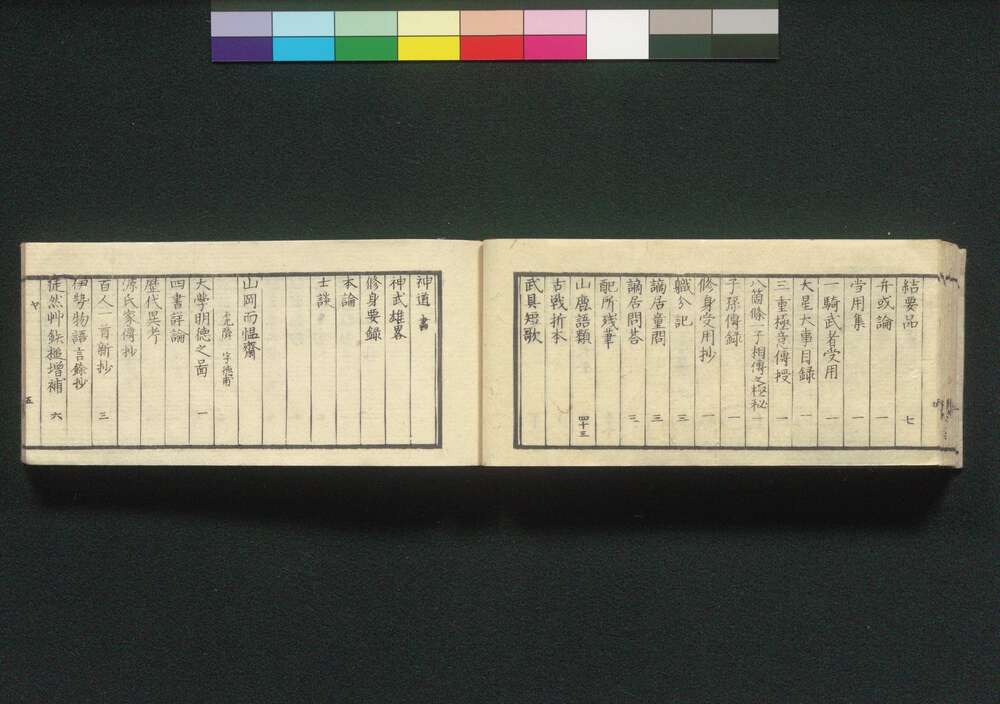 結要品 七
弁或論 一
当用集 一
一騎武者受用 一
大星大事目録 一
三重極意傳授 一
八箇條一子相傳之極秘 一
子孫傳録 一
修身受用抄 一
職分記 三
謫居童問 三
謫居問答 三
配所残筆
山鹿語類 四十三
古戦折本
武具短歌
神道書
神武雄畧
修身要録
本論
士談
山岡而慍齋
元隣 字徳甫
大學明徳之啚 一
四書評論
歴代思考
源氏家傳抄
百人一首新抄 三
伊勢物語言餘抄
徒然艸鉄槌增補 六
ヤ 五